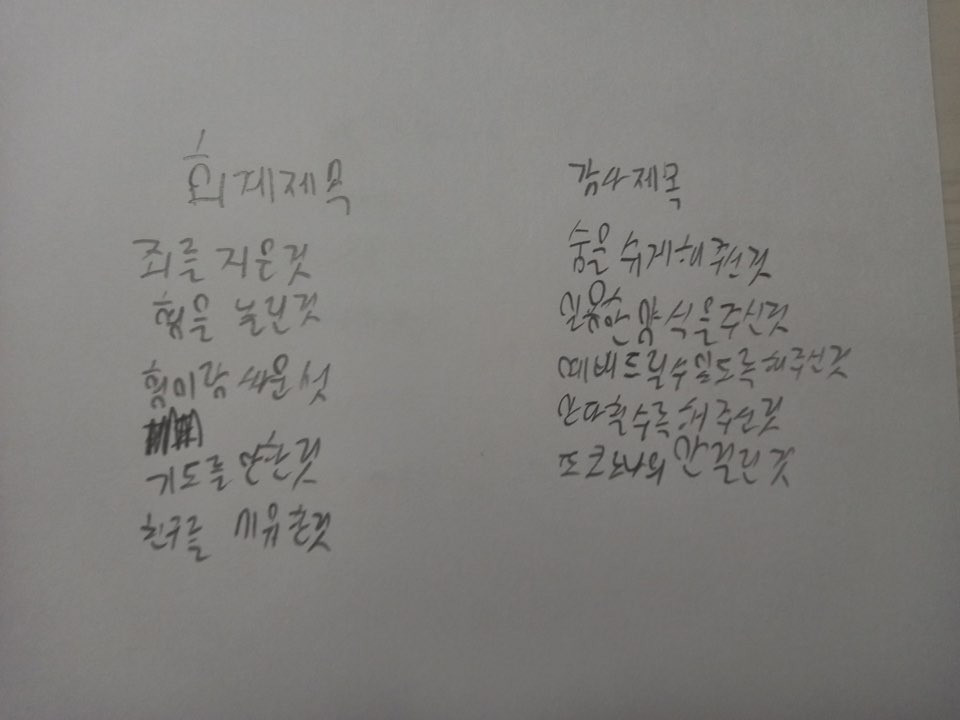 회계제목
죄를 지은것
형을 놀린것
형이랑 싸운것
기도를 안한것
친구를 미워한것
감사제목
숨을 쉬게해주신것
일용한 양식을주신것
예배드릴수있도록해주신것
해주신것
또 코로나의 안걸린것